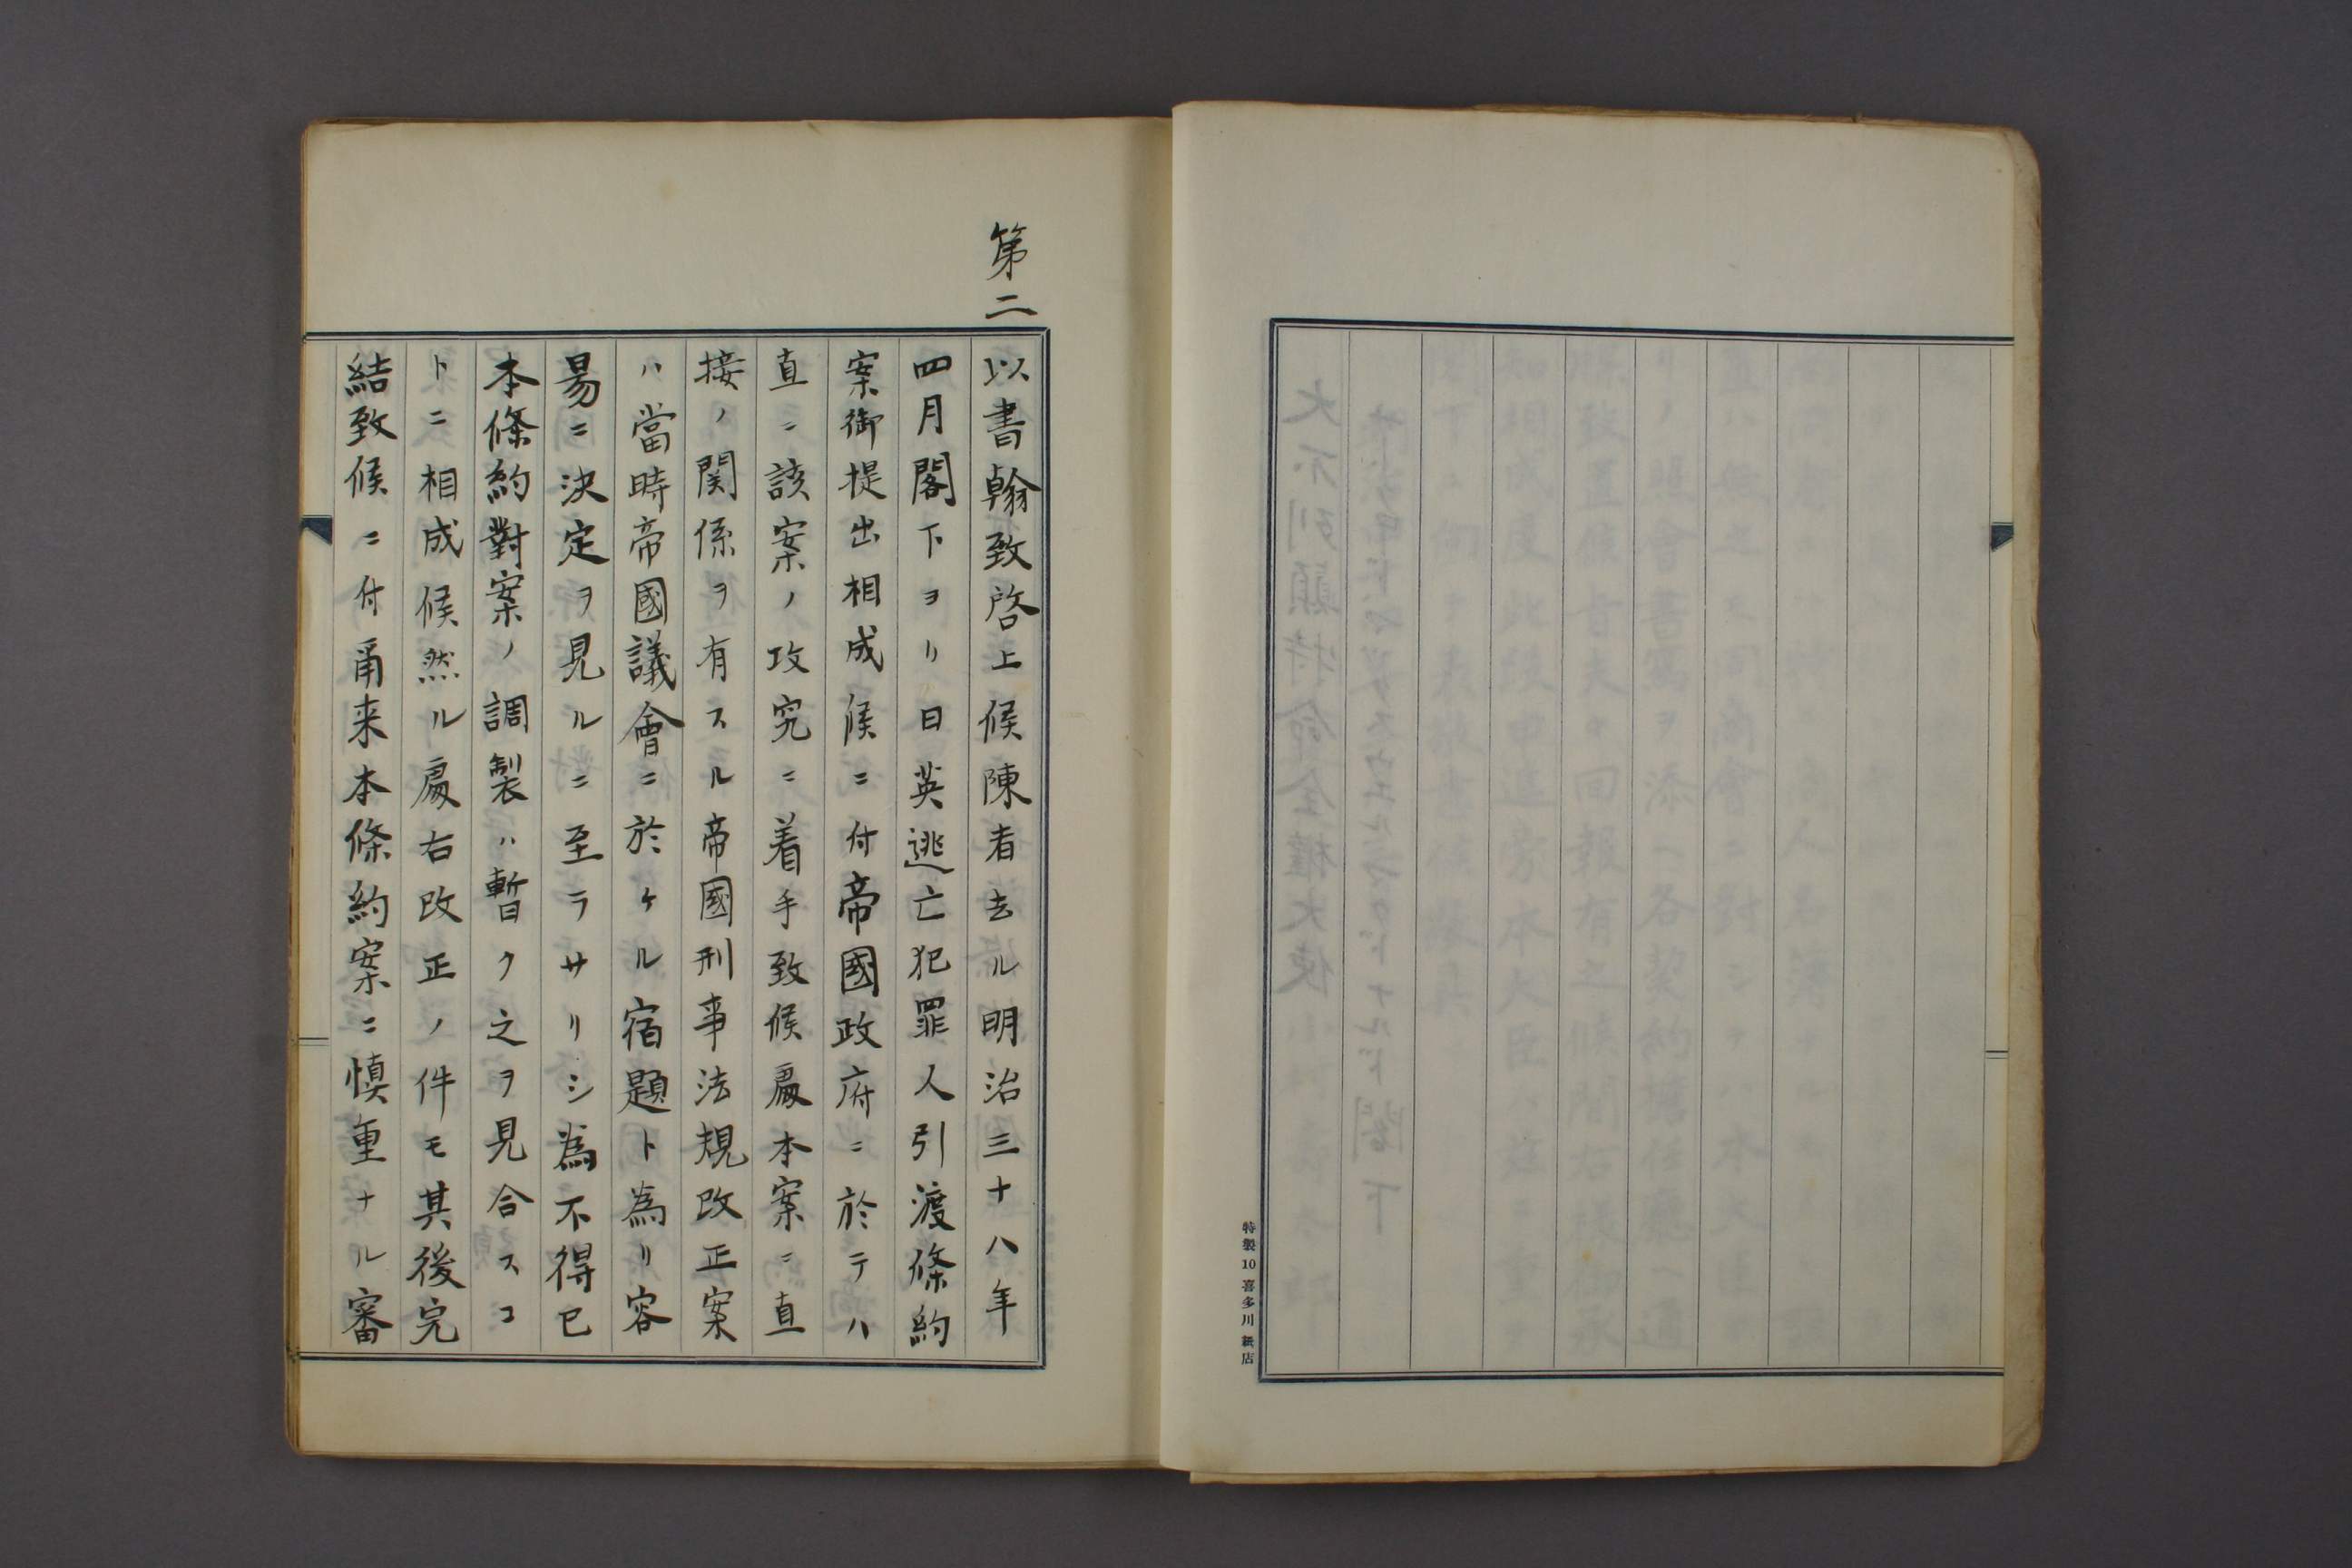 特製10 喜多川紙店
第二
以書翰致啓上候陳者去ル明治三十八年
四月閣下ヨリ日英逃亡犯罪人引渡條約
案御提出相成候ニ付帝國政府ニ於テハ
直ニ該案ノ攻究ニ着手致候處本案ニ直
接ノ関係ヲ有スル帝國刑事法規改正案
ハ當時帝國議會ニ於ケル宿題ト為リ容
易ニ決定ヲ見ルニ至ラサリシ為不得已
本條約對案ノ調製ハ暫ク之ヲ見合スコ
トニ相成候然ル處右改正ノ件モ其後完
結致候ニ付甬来本條約案ニ慎重ナル審